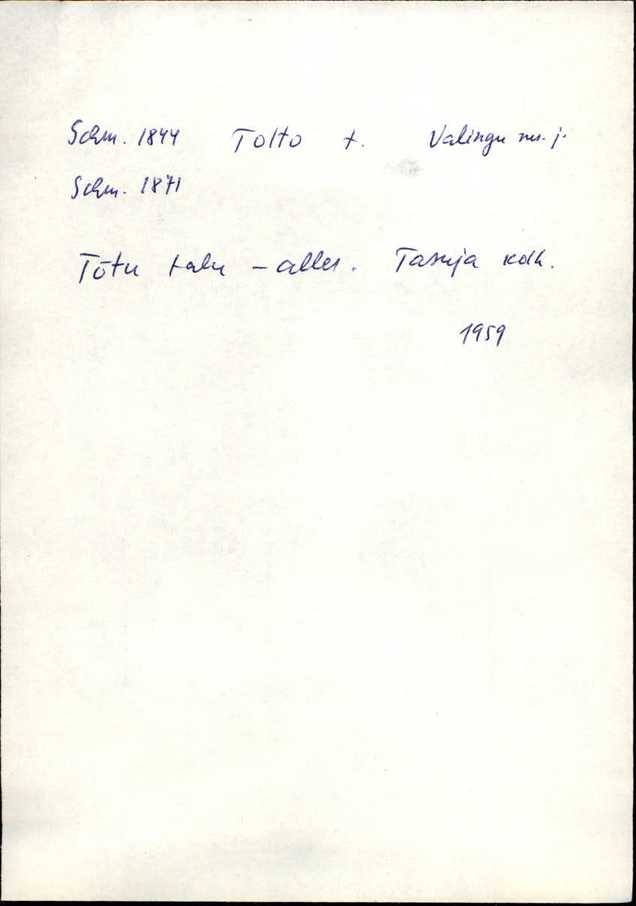 Schm. 1844 Tolto t. Valingu m. j.
Schm. 1871
Tõtu talu – alles. Tasuja kolh.
1959